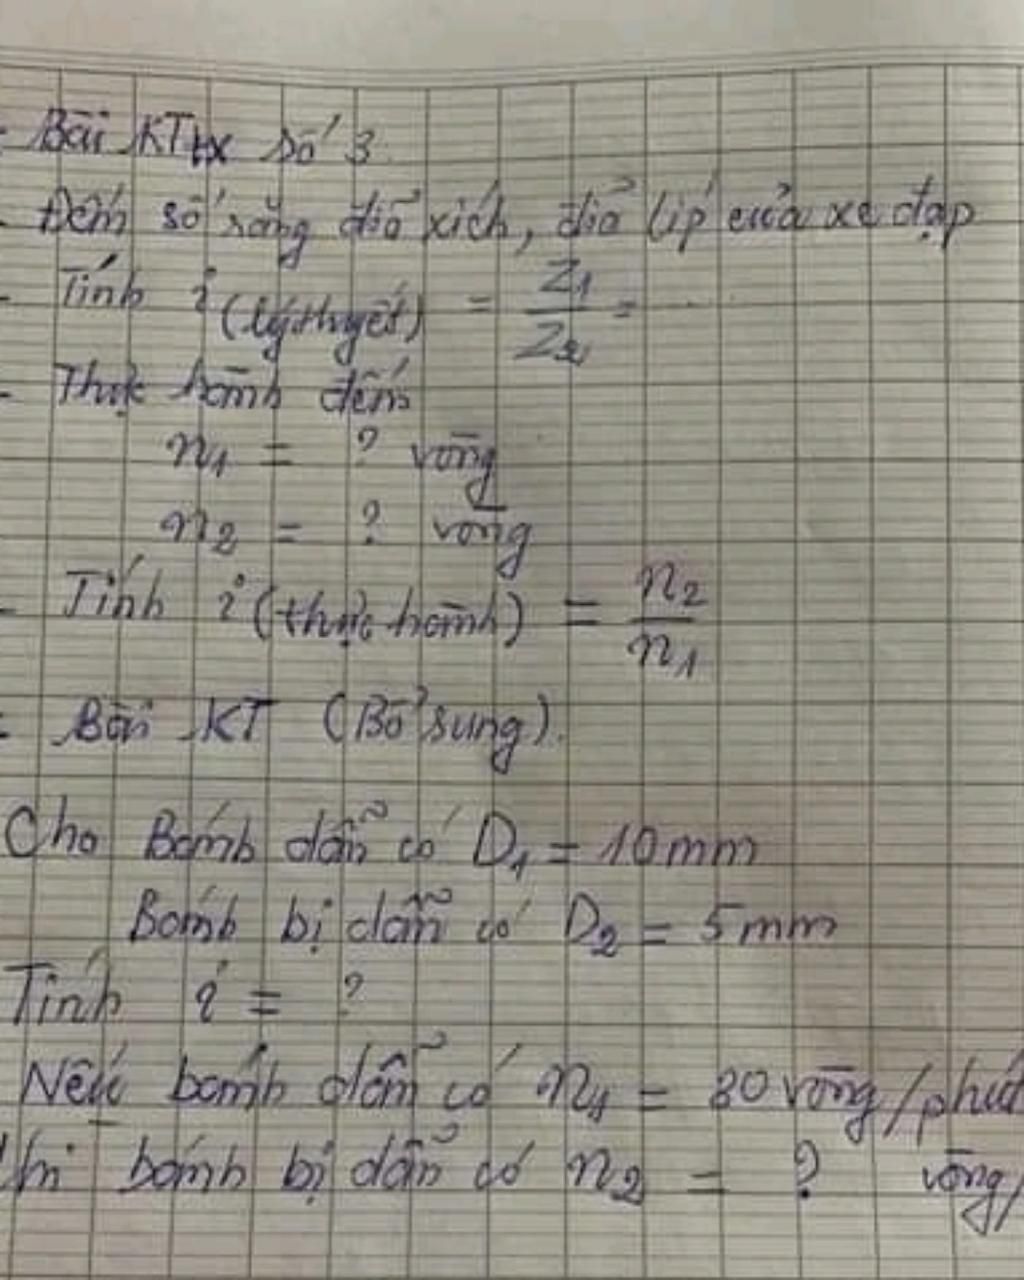 - Bài KTtx số 3
- Đếm số răng đĩa xích, đĩa líp của xe đạp
- Tính i (lý thuyết) = Z1/Z2 = ...
- Thực hành đếm
n1 = ? vòng
n2 = ? vòng
- Tính i (thực hành) = n2/n1
- Bài KT (Bổ sung).
Cho Bánh dẫn có D1 = 10mm
Bánh bị dẫn có D2 = 5mm
Tính i = ?
Nếu bánh dẫn có n1 = 30 vòng/phút
thì bánh bị dẫn có n2 = ? vòng/